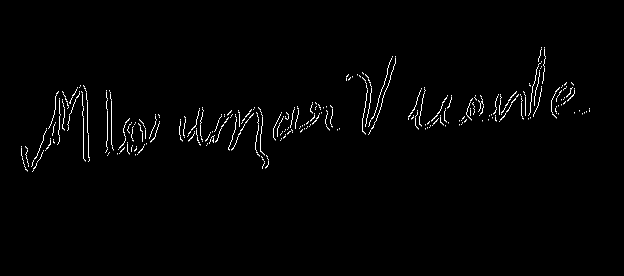 Mloumar Vicente